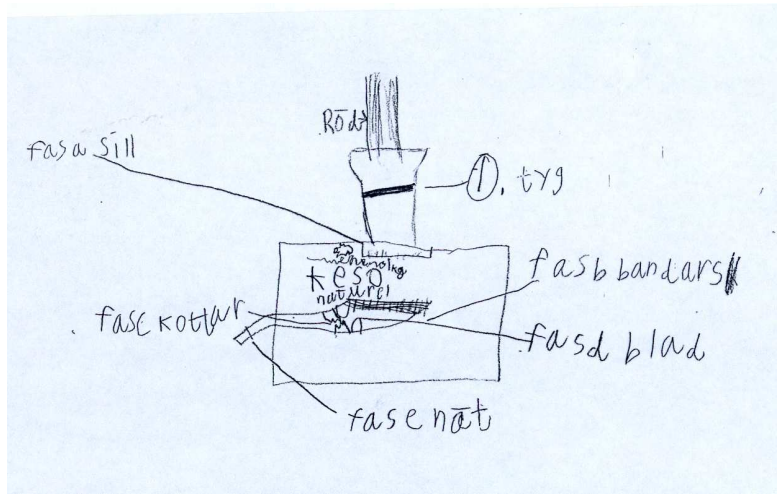 Röd
fas a sill
1. tyg
keso
naturel
fas b bandars
fas c kottar
fas d blad
fas e nät